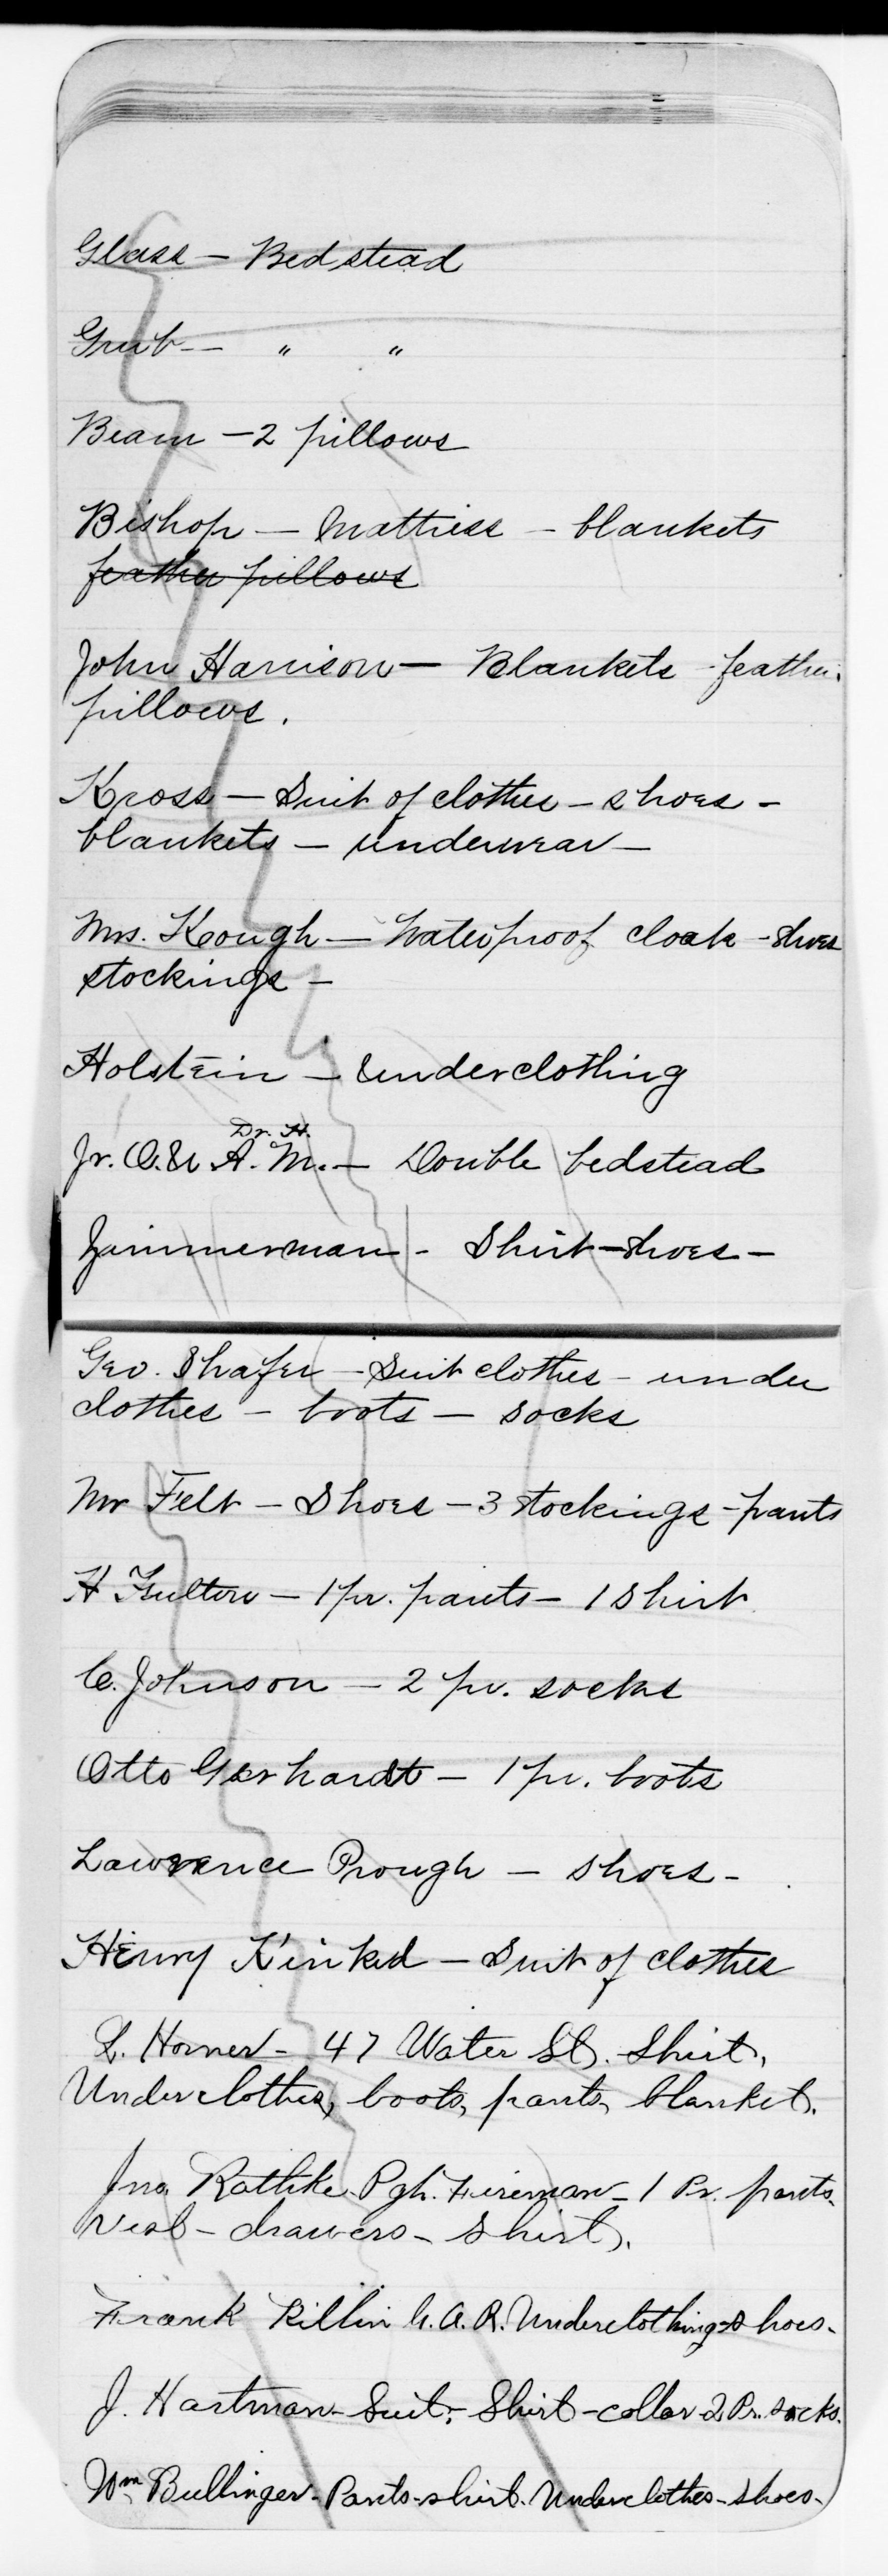 Glass — Bedstead
Grub — " "
Beam — 2 pillows
Bishop — Mattress — blankets
feather pillows
John Harrison — Blankets - feather
pillows.
Kross — Suit of clothes — shoes —
blankets — underwear —
Mrs. Keough — Waterproof cloak - shoes
stockings —
Holstein — Underclothing
Dr. H.
Jr. O. U. A. M. — Double bedstead
Zimmerman - Shirt — shoes —
Geo. Shafer — Suit clothes — under
clothes — boots — socks
Mr Felt — Shoes — 3 stockings - pants
H Fulton — 1 pr. pants — 1 shirt
C. Johnson — 2 pr. socks
Otto Gerhardt — 1 pr. boots
Lawrence Prough — shoes —
Henry Kinked — Suit of clothes
L. Horner - 47 Water St. - Shirt,
Underclothes, boots, pants, blanket.
Jno. Rathke. Pgh. Fireman - 1 Pr. pants.
Vest - drawers - shirt.
Frank Killin G.A.R. Underclothing - shoes -
J. Hartman - Suit, - Shirt - collar - 2 Pr. socks.
Wm Bullinger - Pants - shirt. Underclothes - shoes -